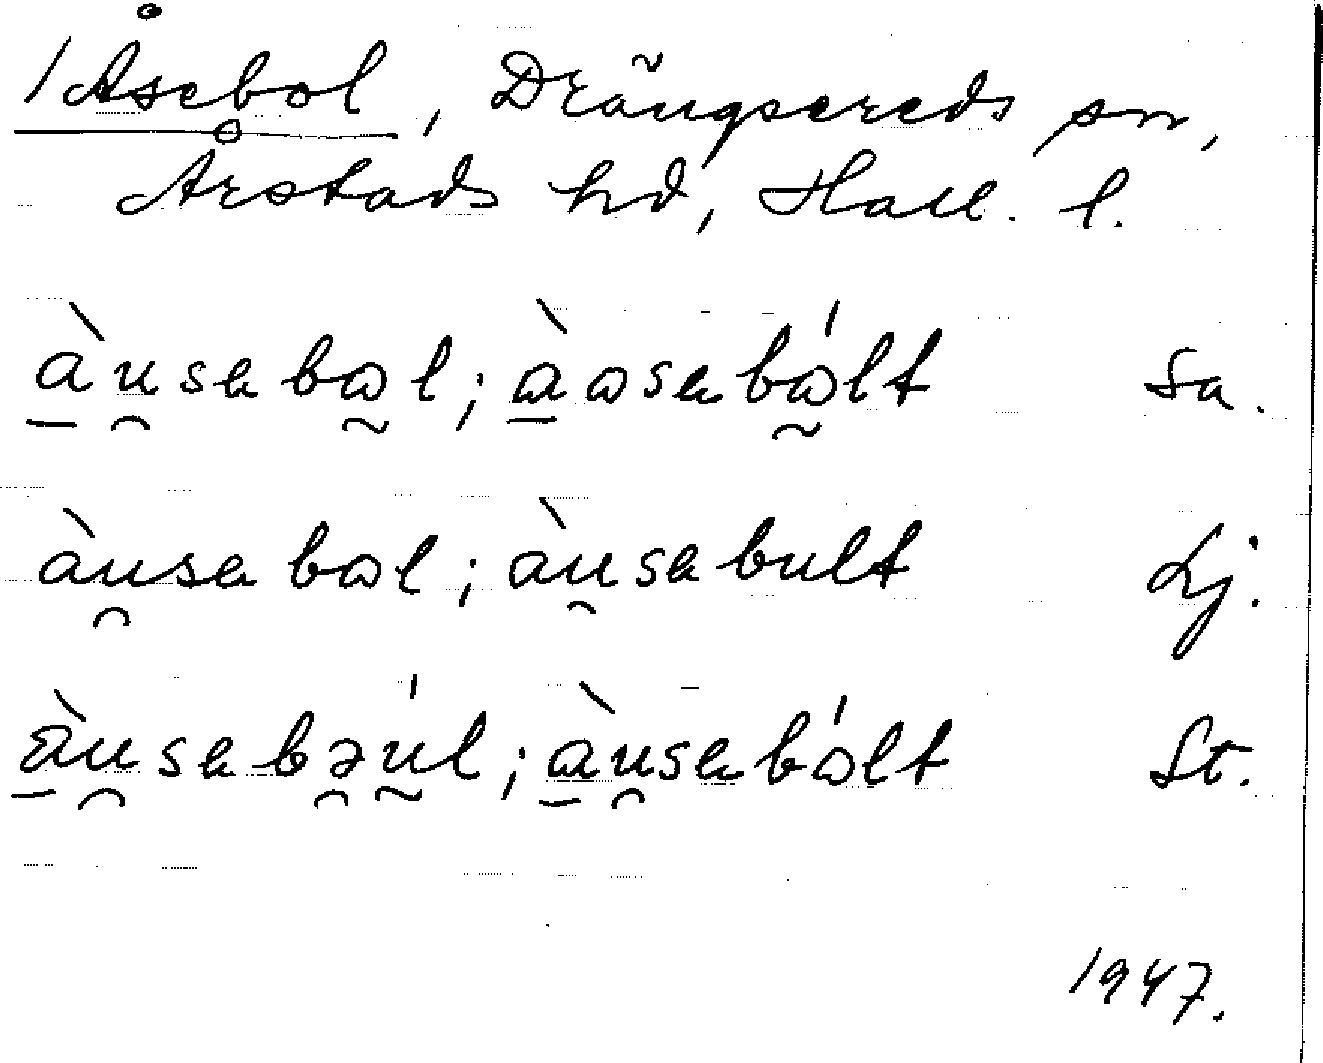 /Åsebol, Drängsereds sn,
Årstads hd, Hall. l.
àu̯sabɷl; àɷsabɷ́lt Sa.
àu̯sabɷl; àu̯sabult Lj.
àu̯sabə̯úl; àu̯sabɷ́lt St.
1947.